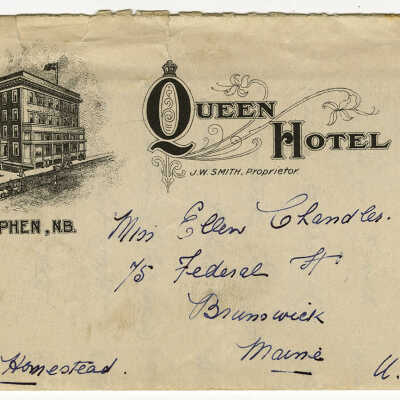 QUEEN
HOTEL
J.W. SMITH, Proprietor
PHEN, N.B.
Miss Ellen Chandler.
75 Federal St.
Brunswick
Maine
U.
Homestead.